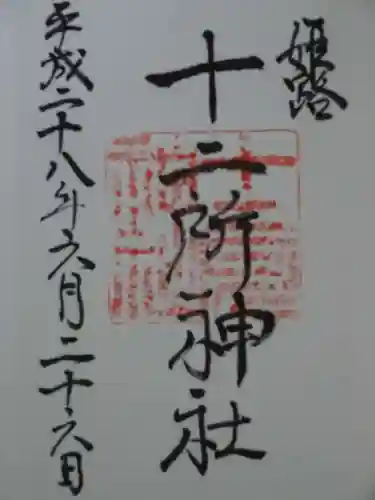 姫路
十二所神社
平成二十八年六月二十六日